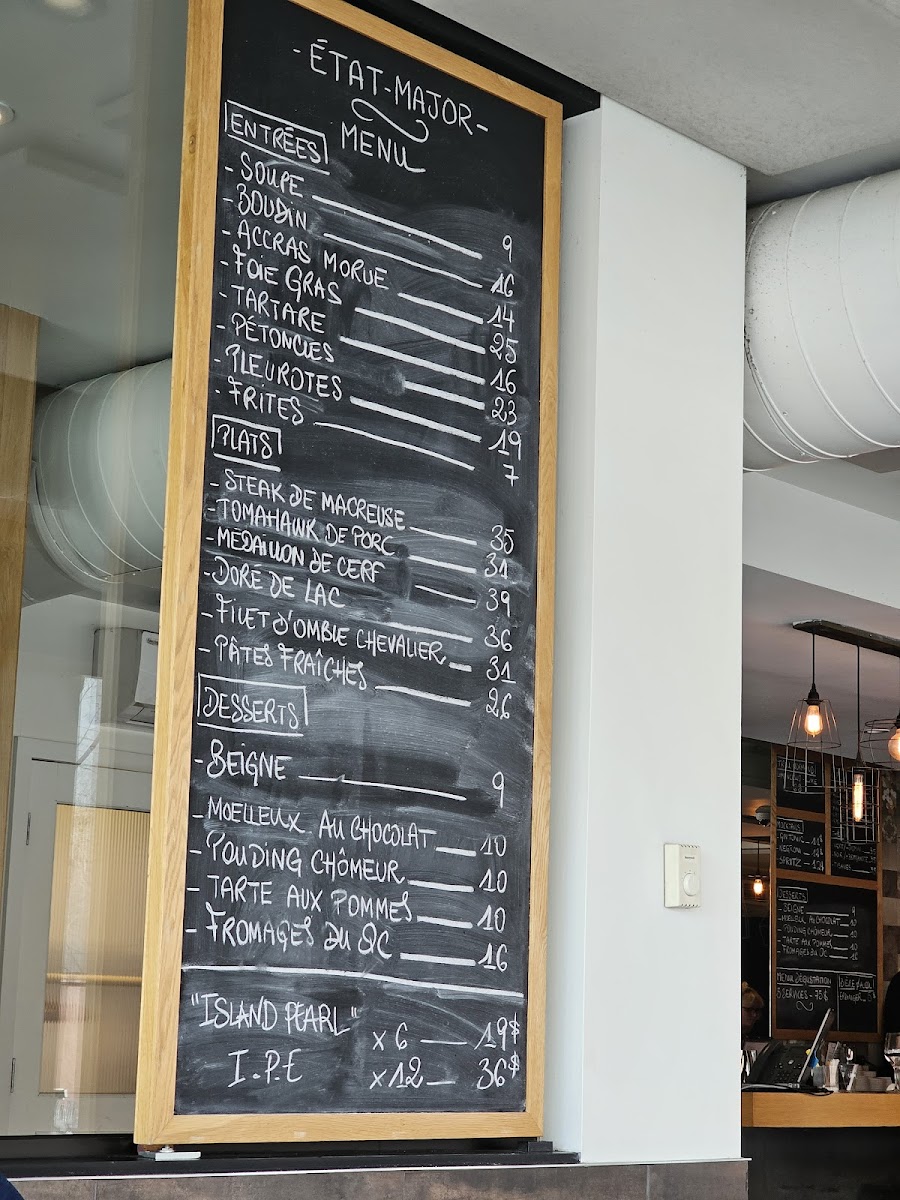 - ÉTAT-MAJOR -
MENU
ENTRÉES
- SOUPE 9
- BOUDIN 16
- ACCRAS MORUE 14
- FOIE GRAS 25
- TARTARE 16
- PÉTONCLES 23
- PLEUROTES 19
- FRITES 7
PLATS
- STEAK DE MACREUSE 35
- TOMAHAWK DE PORC 31
- MÉDAILLON DE CERF 39
- DORÉ DE LAC 36
- FILET D'OMBLE CHEVALIER 31
- PÂTES FRAÎCHES 26
DESSERTS
- BEIGNE 9
- MOELLEUX AU CHOCOLAT 10
- POUDING CHÔMEUR 10
- TARTE AUX POMMES 10
- FROMAGES DU QC 16
"ISLAND PEARL" x 6 19$
I.P.E x12 36$
MOCKTAILS
- NEGRONI
- SPRITZ - 12$
DESSERTS
- BEIGNE 9
- MOELLEUX AU CHOCOLAT 10
- POUDING CHÔMEUR 10
- TARTE AUX POMMES 10
- FROMAGES DU QC 16
MENU DÉGUSTATION
5 SERVICES - 75$